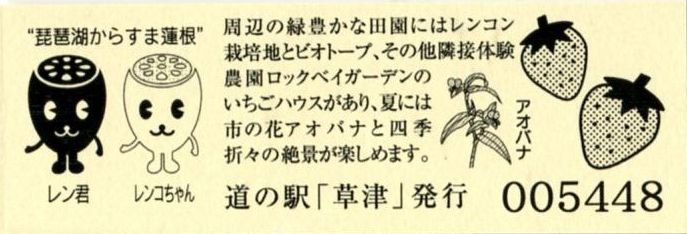 “琵琶湖からすま蓮根”
レン君
レンコちゃん
周辺の緑豊かな田園にはレンコン
栽培地とビオトープ、その他隣接体験
農園ロックベイガーデンの
いちごハウスがあり、夏には
市の花アオバナと四季
折々の絶景が楽しめます。
アオバナ
道の駅「草津」発行
005448